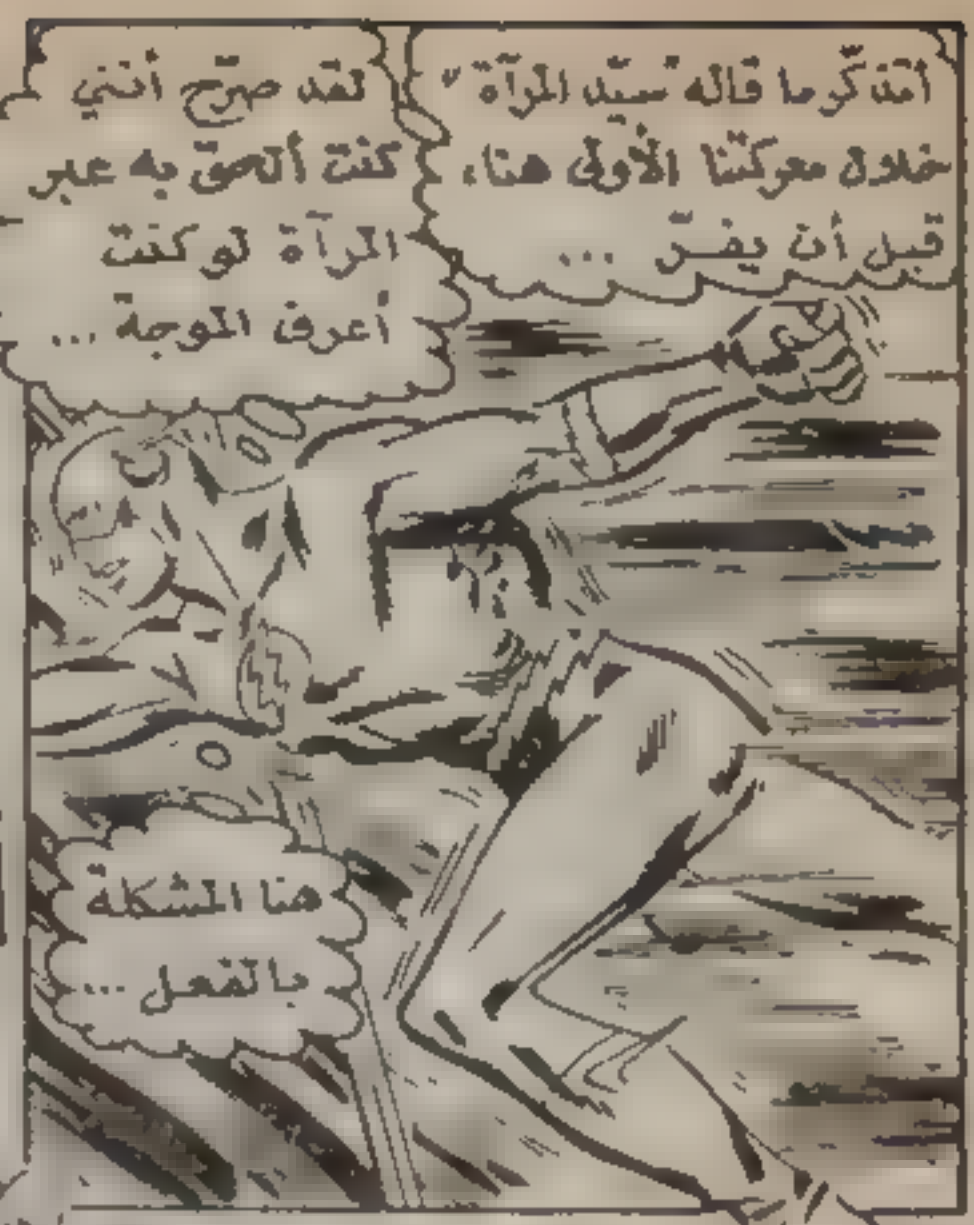 أتذكّر ما قاله "سيّد المرآة"
خلال معركتنا الأولى هنا،
قبل أن يفـرّ ...
لقد صرّح أنني
كنت ألحق به عبر
المرآة لو كنت
أعرف الموجة ...
هنا المشكلة
بالفعل ...